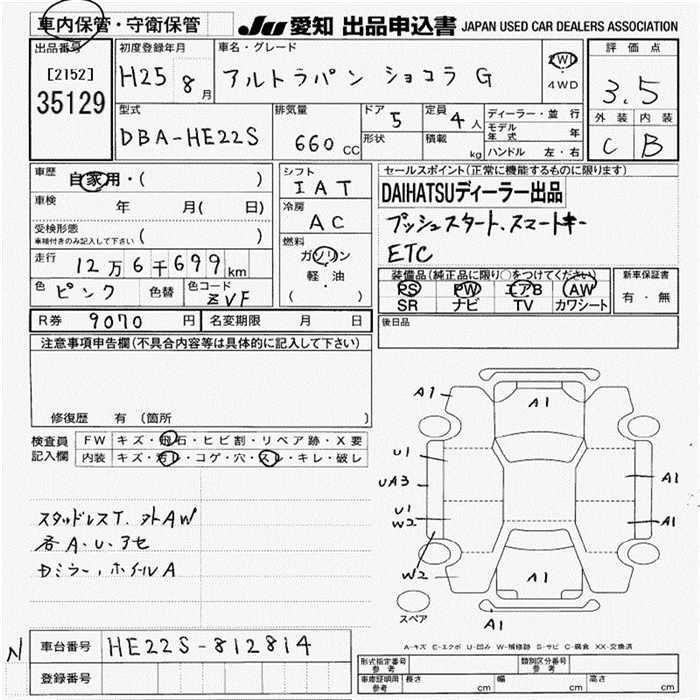 車内保管・守衛保管 JU 愛知 出品申込書 JAPAN USED CAR DEALERS ASSOCIATION
出品番号 初度登録年月 車名・グレード 評価点
[2152] H25 8月 アルトラパン ショコラ G 2WD・4WD 3.5
35129
型式 排気量 ドア 定員 ディーラー・並行 外装 内装
DBA-HE22S 660 CC 5 4人 モデル年式 年 C B
形状 積載 kg ハンドル 左・右
車歴 自家用・( )
車検 年 月( 日)
受検形態 ( )
車検付きのみ記入して下さい
走行 12万6千699 km
色 ピンク 色替 色コード ZVF
シフト IAT
冷房 AC
燃料 ガソリン
軽・油
( )
セールスポイント(正常に機能するものに限ります)
DAIHATSUディーラー出品
プッシュスタート、スマートキー
ETC
装備品(純正品に限り○をつけてください) 新車保証書
PS PW エアB AW 有・無
SR ナビ TV カワシート
R券 9070 円 名変期限 月 日 後日品
注意事項申告欄(不具合内容等は具体的に記入して下さい)
修復歴 有 (箇所 )
検査員記入欄 FW キズ・飛石・ヒビ割・リペア跡・X要
内装 キズ・汚レ・コゲ・穴・スレ・キレ・破レ
スタッドレスT. 外AW
各A、U、アセ
Dミラー、ホイールA
A1
A1
U1
UA3
U1
W2
W2
A1
A1
A1
A1
スペア
A-キズ E-エクボ U-凹み W-補修跡 S-サビ C-腐食 XX-交換済
N 車台番号 HE22S-812814
登録番号
形式指定番号 参考 類別区分番号 参考
車庫証明用 参考 長さ cm 幅 cm 高さ cm